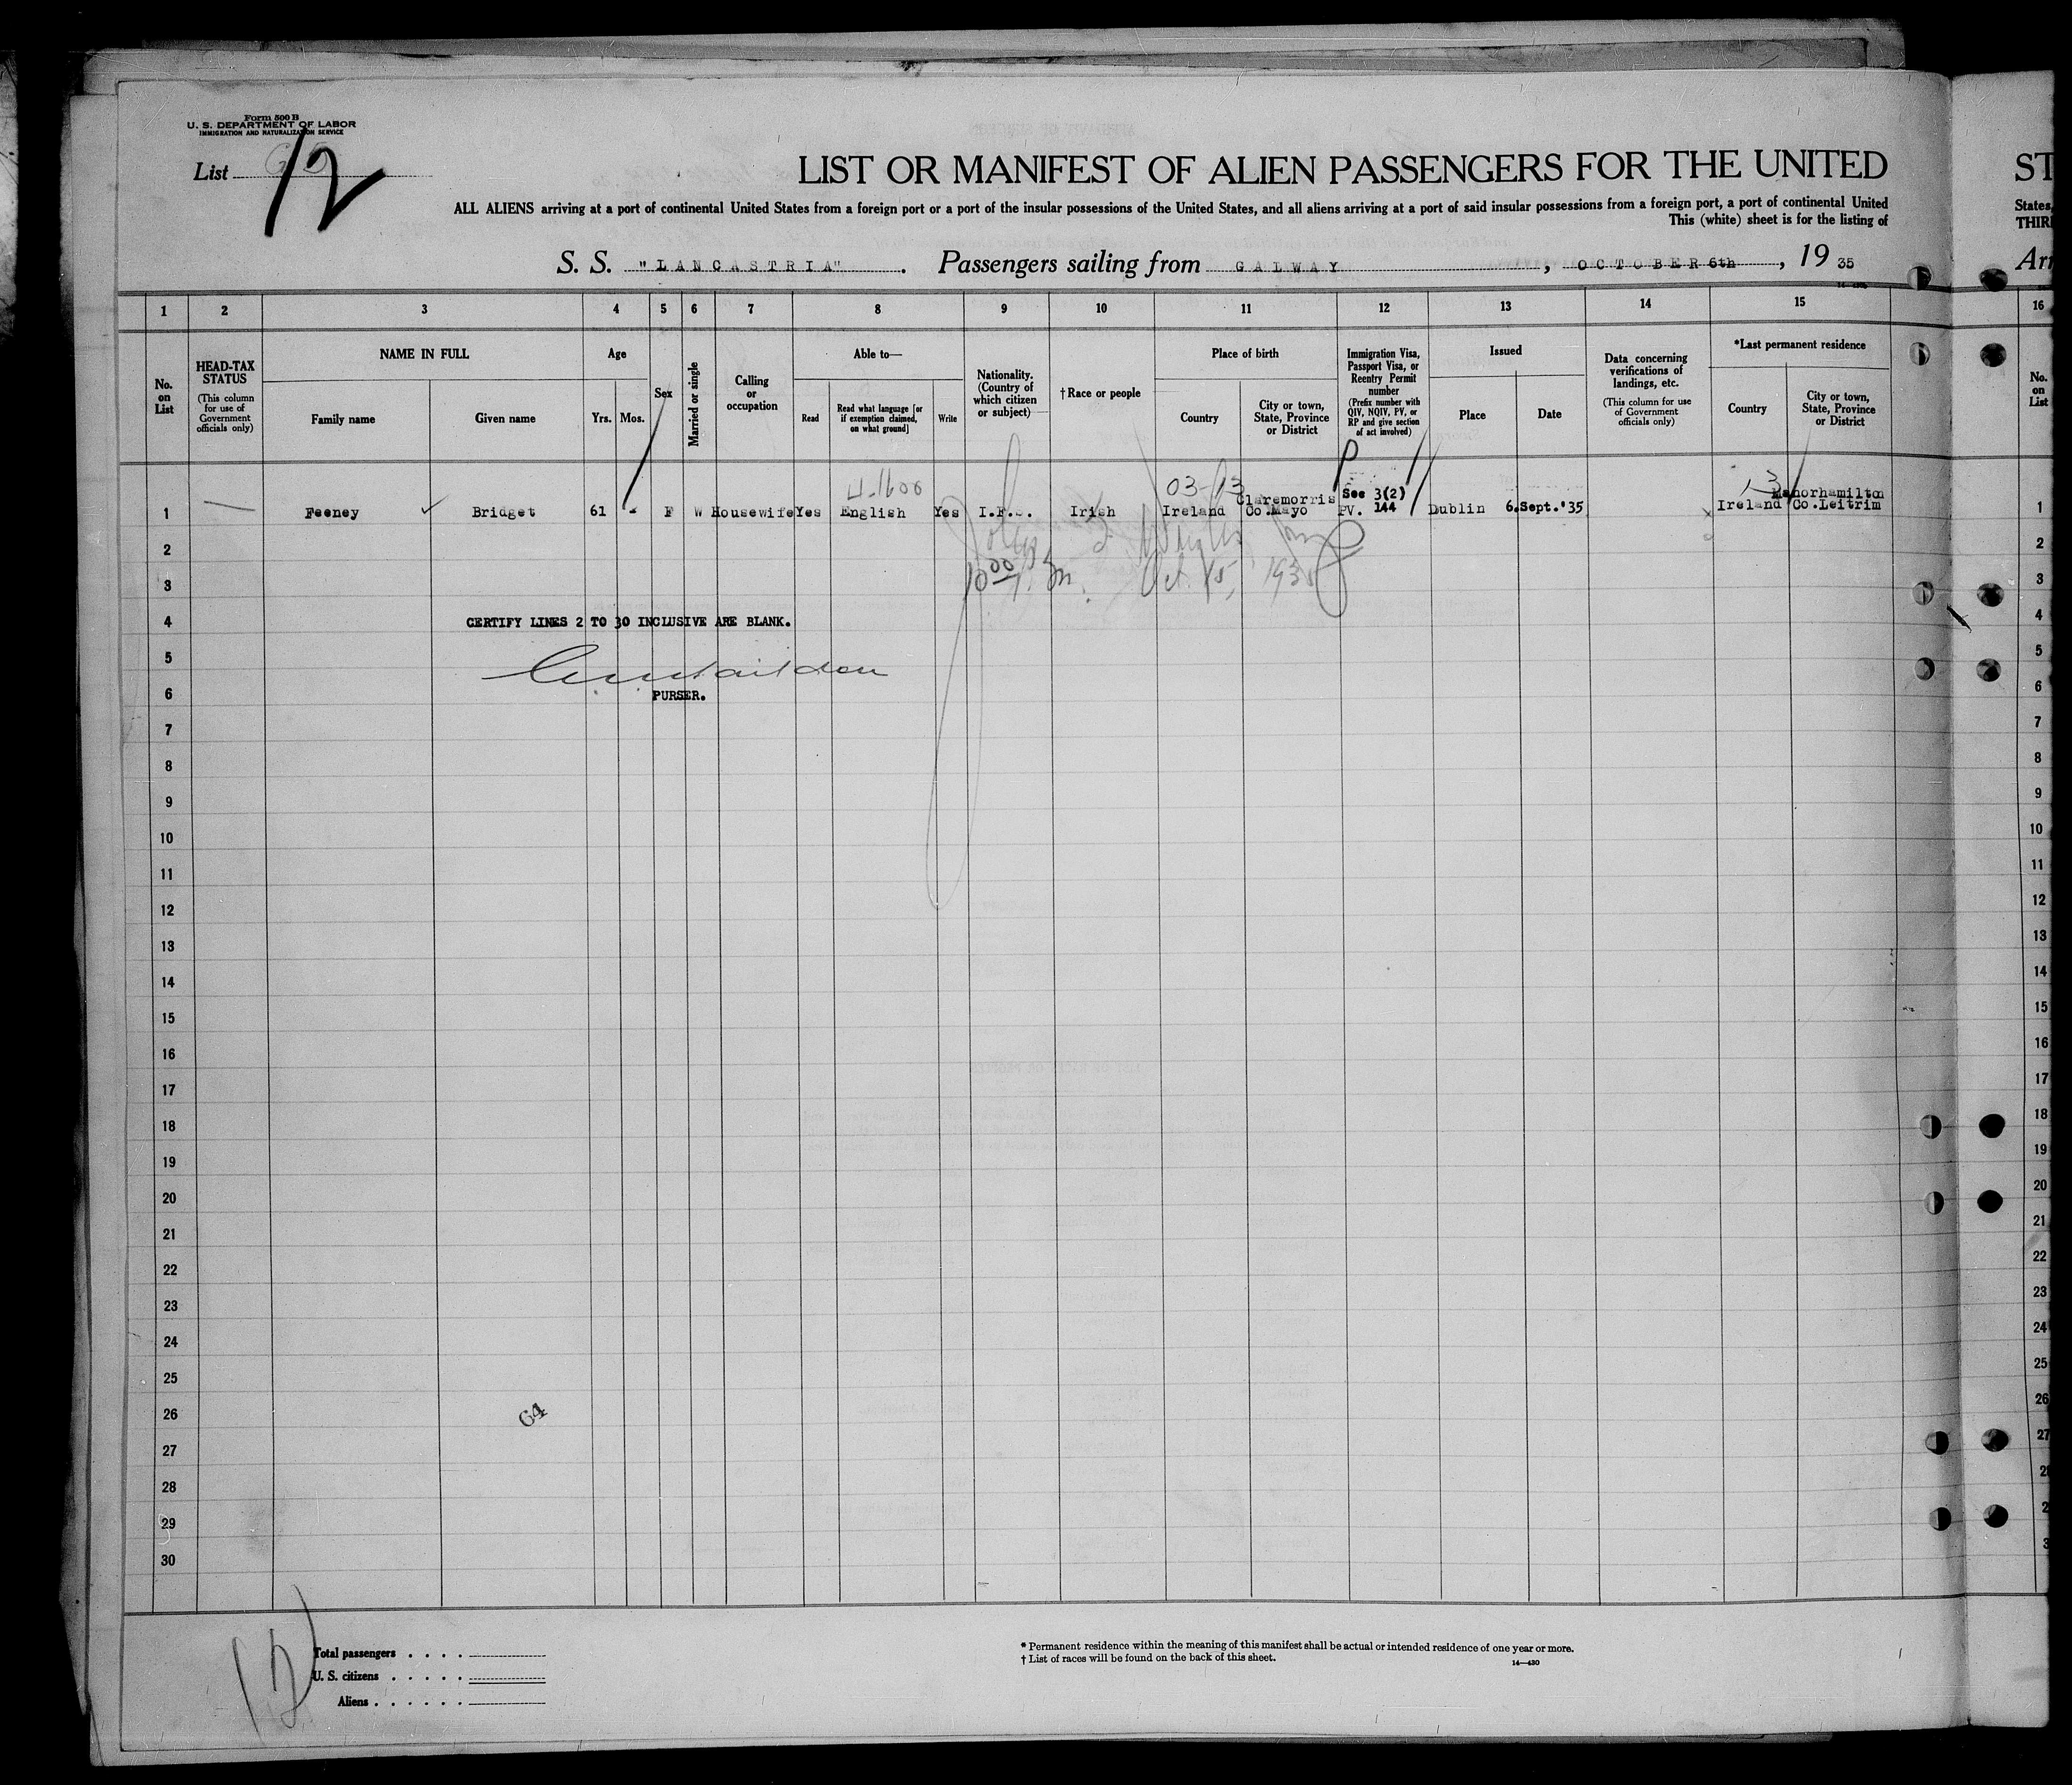 Form 500 B
U. S. DEPARTMENT OF LABOR
IMMIGRATION AND NATURALIZATION SERVICE
List 12
LIST OR MANIFEST OF ALIEN PASSENGERS FOR THE UNITED
ST
ALL ALIENS arriving at a port of continental United States from a foreign port or a port of the insular possessions of the United States, and all aliens arriving at a port of said insular possessions from a foreign port, a port of continental United
States,
This (white) sheet is for the listing of
THIR
S. S. "LANCASTRIA" . Passengers sailing from GALWAY , OCTOBER 6th , 19 35
Arr
1 2 3 4 5 6 7 8 9 10 11 12 13 14 15 16
No. on List
HEAD-TAX STATUS (This column for use of Government officials only)
NAME IN FULL
Family name
Given name
Age
Yrs.
Mos.
Sex
Married or single
Calling or occupation
Able to—
Read
Read what language [or if exemption claimed, on what ground]
Write
Nationality. (Country of which citizen or subject)
† Race or people
Place of birth
Country
City or town, State, Province or District
Immigration Visa, Passport Visa, or Reentry Permit number (Prefix number with QIV, NQIV, PV, or RP and give section of act involved)
Issued
Place
Date
Data concerning verifications of landings, etc. (This column for use of Government officials only)
*Last permanent residence
Country
City or town, State, Province or District
No. on List
03-13
Claremorris Sec 3(2) Manorhamilton
1 Feeney Bridget 61 - F W Housewife Yes English Yes Irish Ireland Co.Mayo PV. 144 Dublin 6.Sept.'35 Ireland Co.Leitrim 1
2 2
10 00 Oct. 15, 1935
3 3
4 CERTIFY LINES 2 TO 30 INCLUSIVE ARE BLANK. 4
5 5
6 PURSER. 6
7 7
8 8
9 9
10 10
11 11
12 12
13 13
14 14
15 15
16 16
17 17
18 18
19 19
20 20
21 21
22 22
23 23
24 24
25 25
26 64 26
27 27
28
29
30
12
Total passengers . . . .
U. S. citizens . . . . .
Aliens . . . . . .
* Permanent residence within the meaning of this manifest shall be actual or intended residence of one year or more.
† List of races will be found on the back of this sheet.
14—430